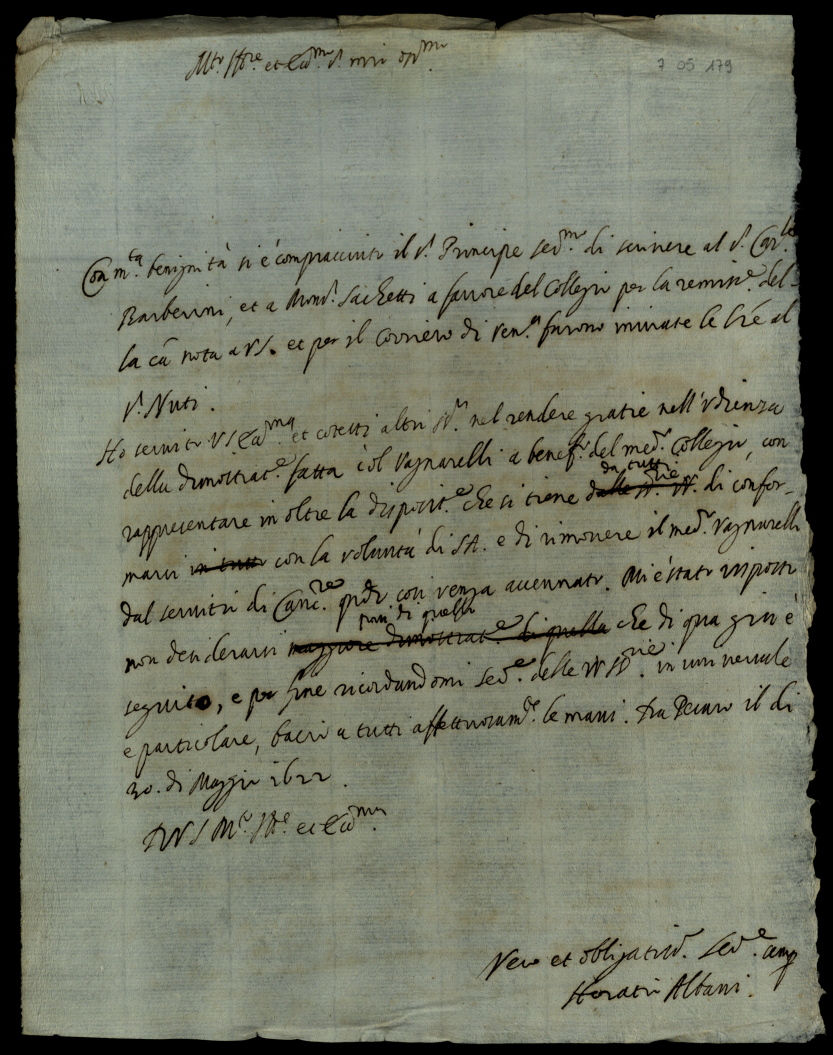 Mto Ill.re et Ecc.mo S. mio oss.mo
7 05 179
Con m.ta benignità si è compiacciuto il S.r Principe Ser.mo di scrivere al S.r Car.le
Barberini, et a Mons.r Sachetti a favore del Collegio per la remiss.e del-
la cã nota a VS. et per il Corriero di Ven.a furono inviate le lre al
S.r Nuti.
Ho servito VS Ecc.ma et cotesti altri SS.ri nel rendere gratie nell'udienza
della dimostrat.e fatta col Vagnarelli a benef.o del med.o Collegio, con
da tutti
rappresentare in oltre la disposit.e che si tiene dalle SS.rie VV. di confor-
marsi in tutto con la volontà di SA. e di rimovere il med.o Vagnarelli
dal servitio di Canc.re qñdo così venga accennato. Mi è stato risposto
più di quello
non desiderarsi maggiore dimostrat.e di quella che di qua già è
seguito, e per fine ricordandomi Ser.e delle VV SS.rie in universale
e particolare, bacio a tutti affettuosam.te le mani. Da Pesaro il di
30. di Maggio 1622.
D VS M.to Ill.re et Ecc.ma
Vero et obligatiss.o Ser.e
Horatio Albani.